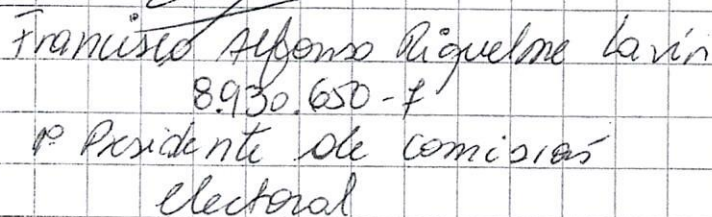 Francisco Alfonso Riquelme Lavín
8.930.650-7
Pº Presidente de comisión
electoral